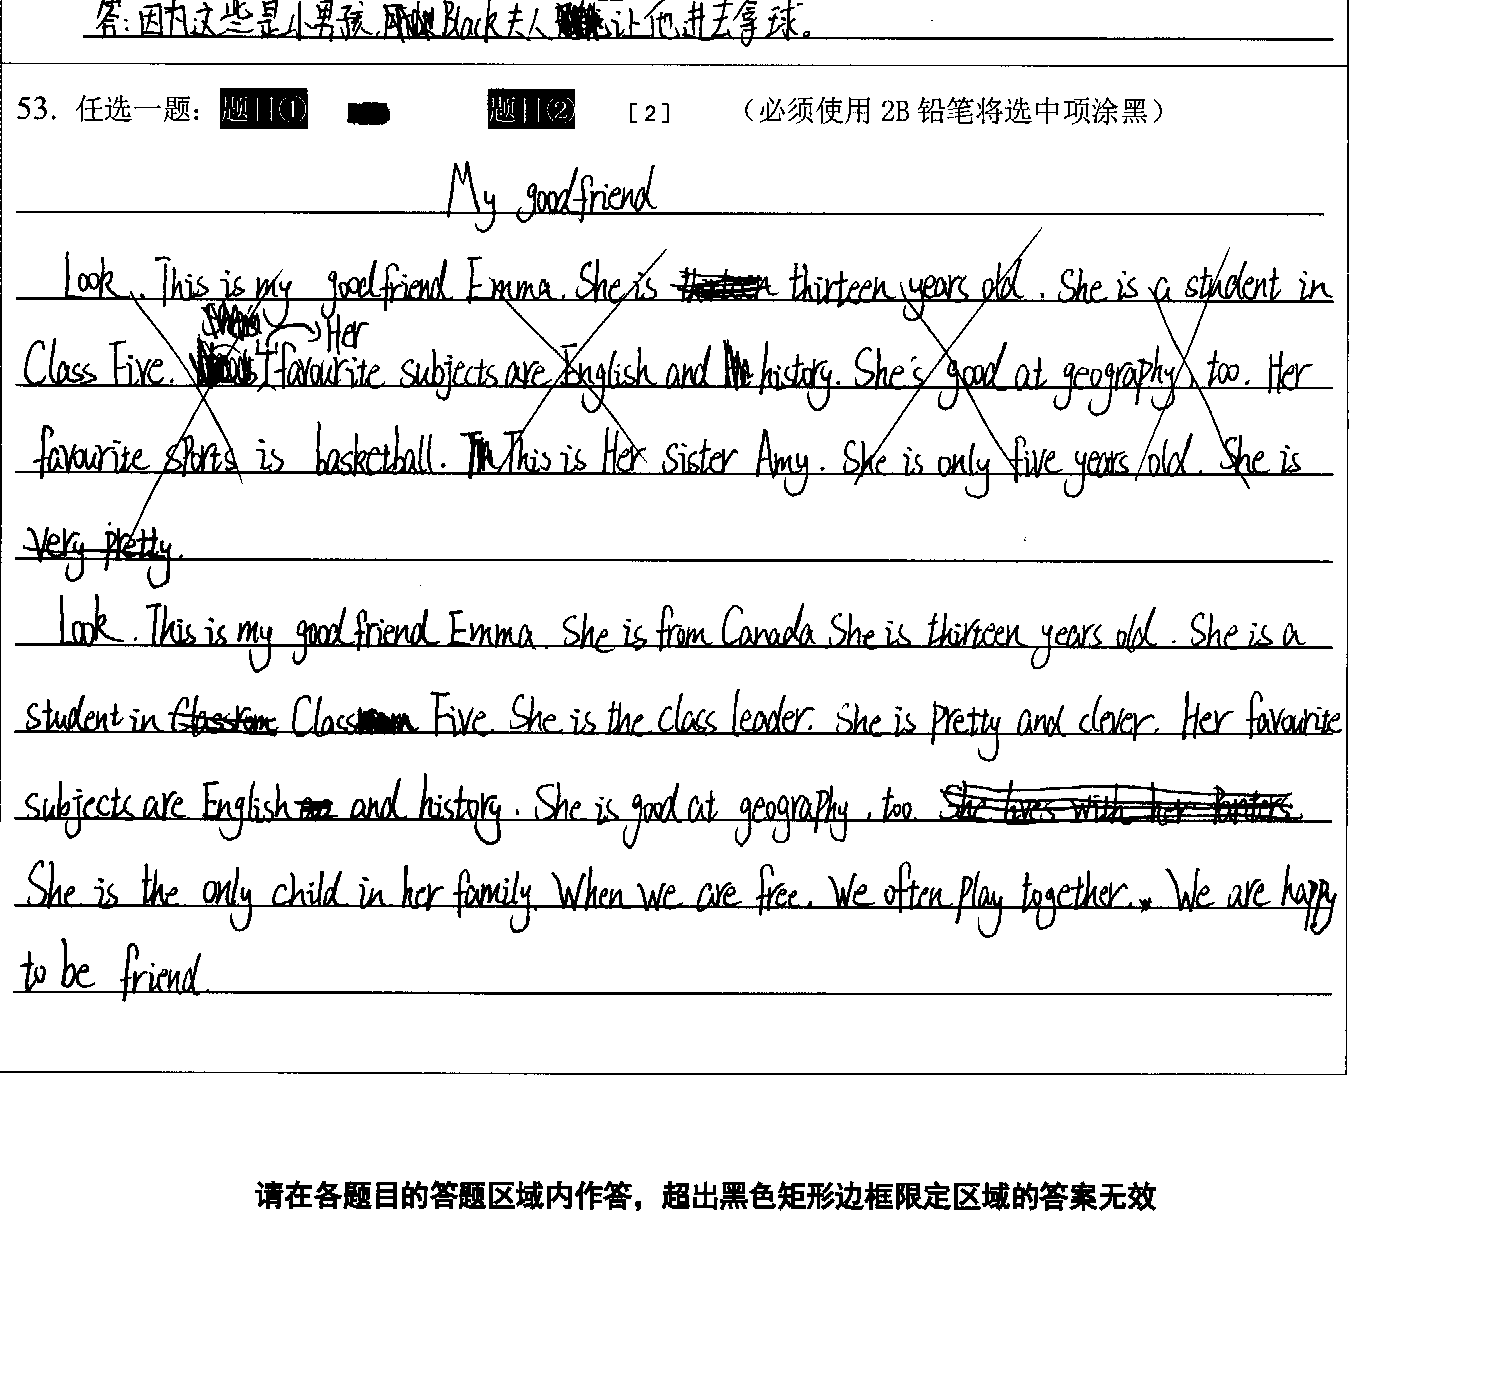 答:因为这些是小男孩, Black夫人让他进去拿球。
53. 任选一题: 题目① 题目② [2] (必须使用 2B 铅笔将选中项涂黑)
My goodfriend
Look. This is my goodfriend Emma. She is thirteen years old. She is a student in
Her
Class Five. I favourite subjects are English and history. She's good at geography, too. Her
favourite sports is basketball. This is Her sister Amy. She is only five years old. She is
very pretty.
Look. This is my good friend Emma. She is from Canada She is thirteen years old. She is a
student in Class Five. She is the class leader. She is pretty and clever. Her favourite
subjects are English and history. She is good at geography, too. She lives with her
She is the only child in her family. When we are free. We often play together. We are happy
to be friend.
请在各题目的答题区域内作答，超出黑色矩形边框限定区域的答案无效